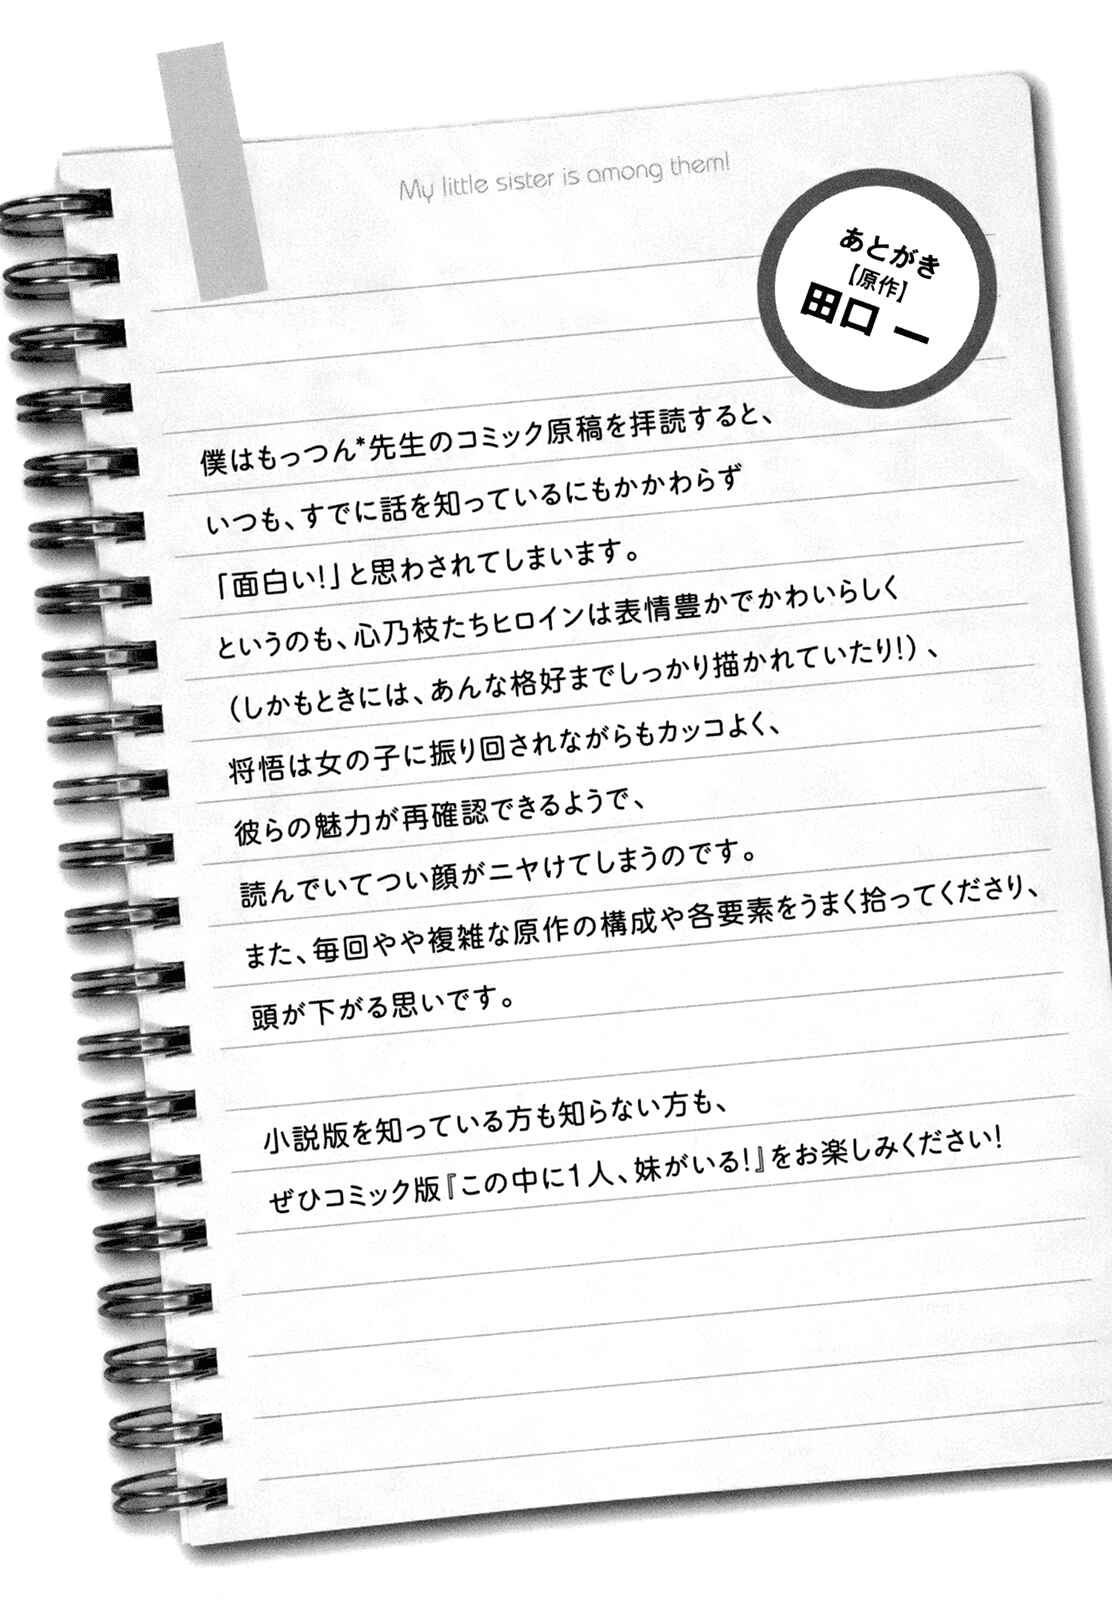 My little sister is among them!
あとがき
【原作】
田口 一
僕はもっつん*先生のコミック原稿を拝読すると、
いつも、すでに話を知っているにもかかわらず
「面白い!」と思わされてしまいます。
というのも、心乃枝たちヒロインは表情豊かでかわいらしく
（しかもときには、あんな格好までしっかり描かれていたり!）、
将悟は女の子に振り回されながらもカッコよく、
彼らの魅力が再確認できるようで、
読んでいてつい顔がニヤけてしまうのです。
また、毎回やや複雑な原作の構成や各要素をうまく拾ってくださり、
頭が下がる思いです。
小説版を知っている方も知らない方も、
ぜひコミック版『この中に1人、妹がいる!』をお楽しみください!